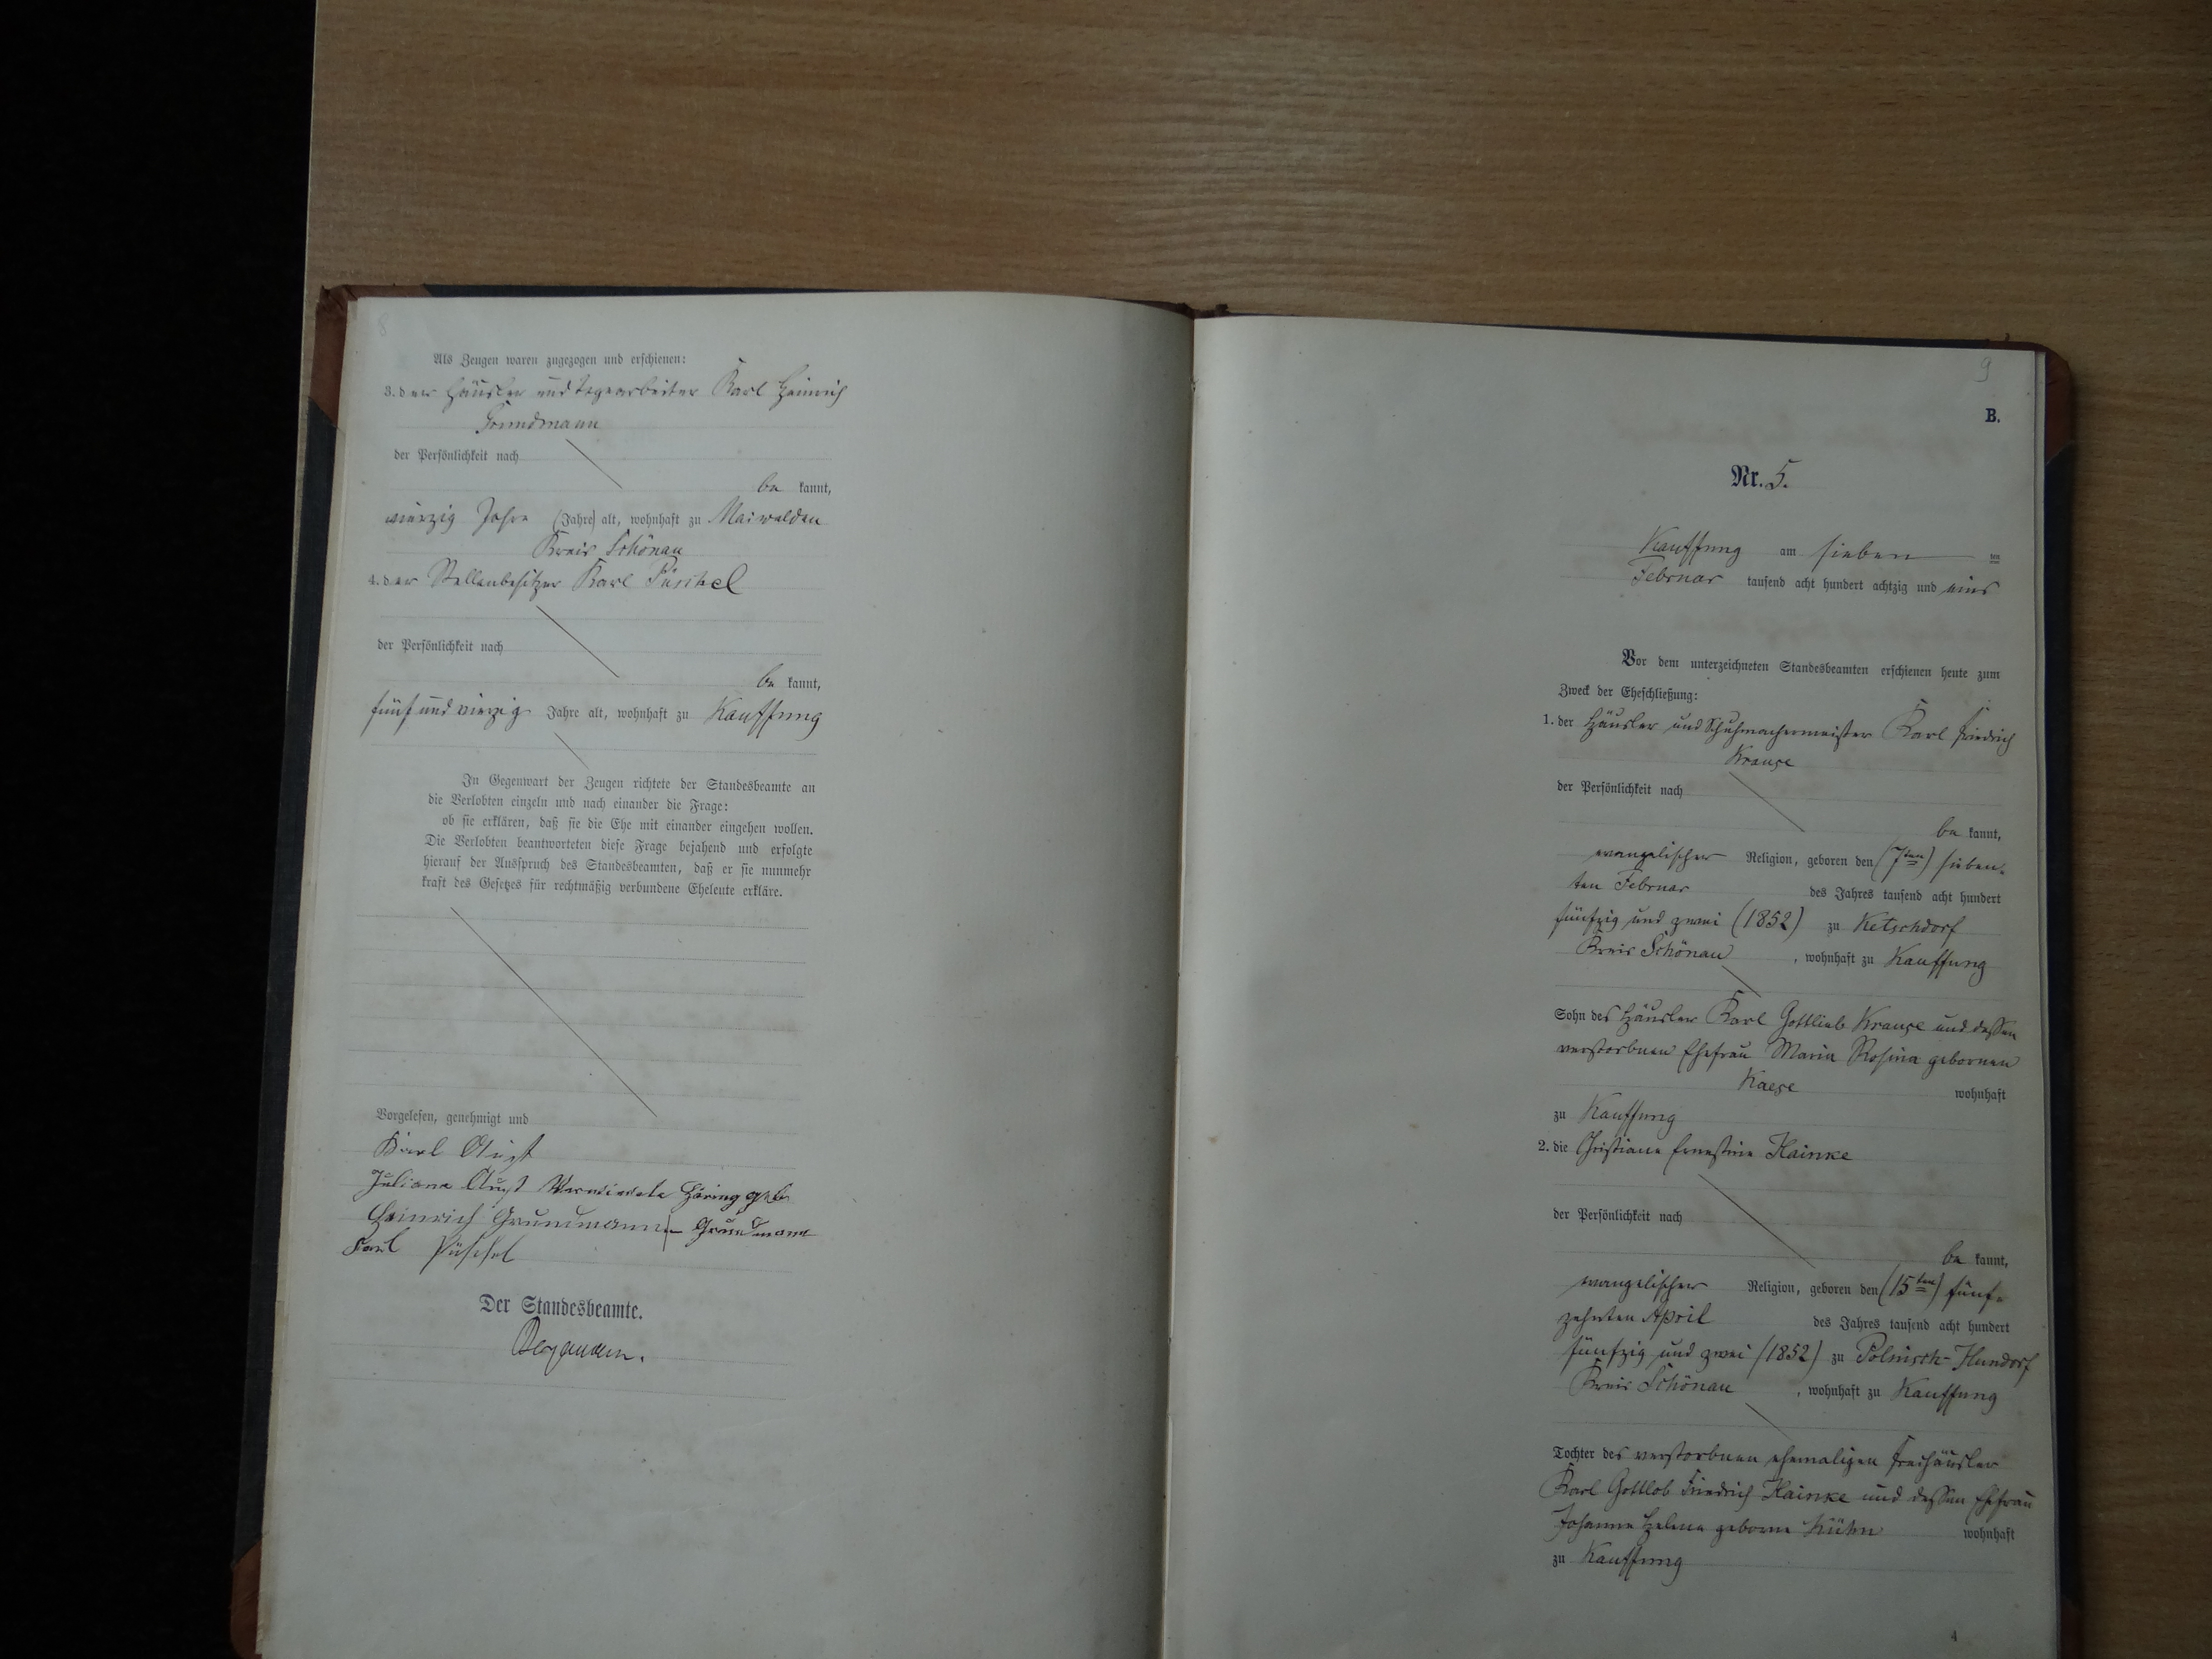 8
Als Zeugen waren zugezogen und erschienen:
3. der Häusler und Tagearbeiter Karl Heinrich
Grundmann
der Persönlichkeit nach
be kannt,
vierzig Jahre (Jahre) alt, wohnhaft zu Maiwaldau
Kreis Schönau
4. der Stellenbesitzer Karl Püschel
der Persönlichkeit nach
be kannt,
fünf und vierzig Jahre alt, wohnhaft zu Kauffung
In Gegenwart der Zeugen richtete der Standesbeamte an
die Verlobten einzeln und nach einander die Frage:
ob sie erklären, daß sie die Ehe mit einander eingehen wollen.
Die Verlobten beantworteten diese Frage bejahend und erfolgte
hierauf der Ausspruch des Standesbeamten, daß er sie nunmehr
kraft des Gesetzes für rechtmäßig verbundene Eheleute erkläre.
Vorgelesen, genehmigt und
Karl Augst
Juliane Augst Verwittwete Häring geb
Heinrich Grundmann Grundmann
Karl Püschel
Der Standesbeamte.
9
B.
Nr. 5.
Kauffung am sieben ten
Februar tausend acht hundert achtzig und eins
Vor dem unterzeichneten Standesbeamten erschienen heute zum
Zweck der Eheschließung:
1. der Häusler und Schuhmachermeister Karl Friedrich
Krause
der Persönlichkeit nach
be kannt,
evangelischer Religion, geboren den (7ten) sieben-
ten Februar des Jahres tausend acht hundert
fünfzig und zwei (1852) zu Ketschdorf
Kreis Schönau , wohnhaft zu Kauffung
Sohn des Häusler Karl Gottlieb Krause und dessen
verstorbnen Ehefrau Maria Rosina gebornen
Kaese wohnhaft
zu Kauffung
2. die Christiane Ernestine Hainke
der Persönlichkeit nach
be kannt,
evangelischer Religion, geboren den (15ten) fünf-
zehnten April des Jahres tausend acht hundert
fünfzig und zwei (1852) zu Polnisch-Hundorf
Kreis Schönau , wohnhaft zu Kauffung
Tochter des verstorbnen ehemaligen Freihäusler
Karl Gottlob Friedrich Hainke und dessen Ehefrau
Johanne Helene geborne Kühn wohnhaft
zu Kauffung
4